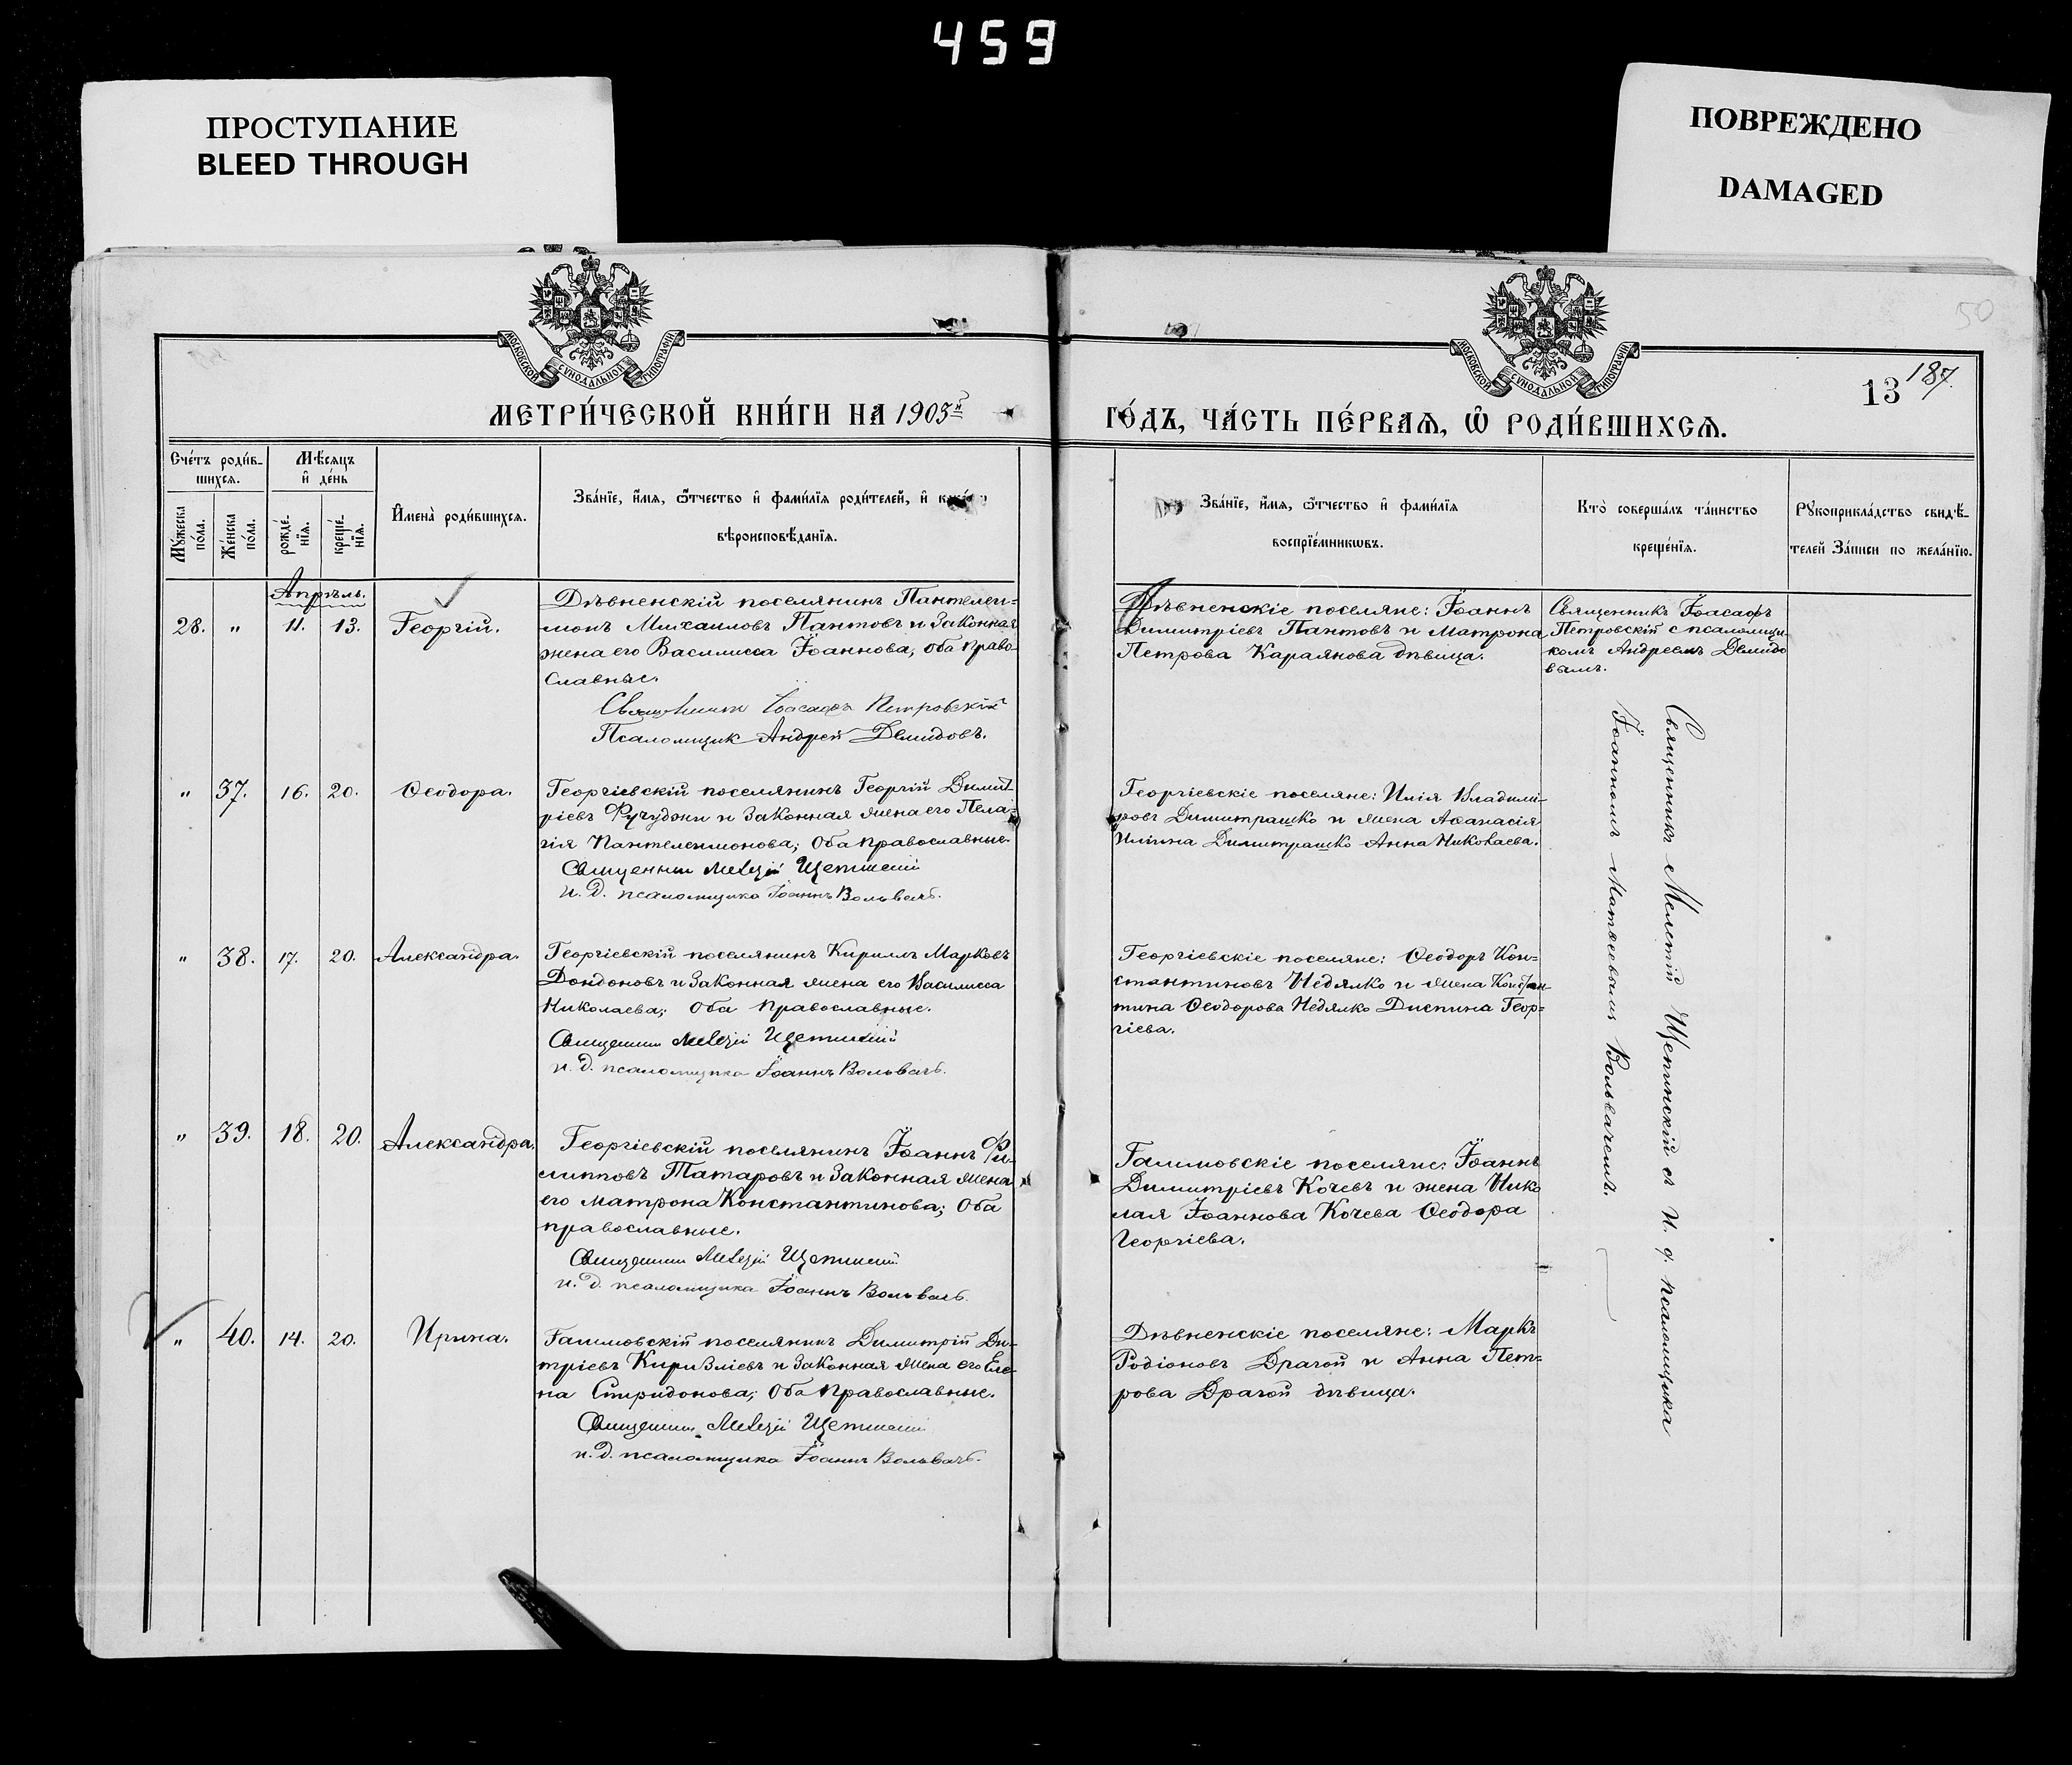 459
ПРОСТУПАНИЕ
BLEED THROUGH
ПОВРЕЖДЕНО
DAMAGED
МОСКОВСКОЙ СУНОДАЛЬНОЙ ТИПОГРАФІИ
МОСКОВСКОЙ СУНОДАЛЬНОЙ ТИПОГРАФІИ
50
13 187.
МЕТРИ́ЧЕСКОЙ КНИ́ГИ НА 1905й
ГО́ДЪ, ЧА́СТЬ ПЕ́РВАѦ, Ѿ РОДИ́ВШИХСѦ.
Сче́тъ роди́в-
шихся.
Мѣ́сяцъ
и҆ де́нь
Му́жеска по́ла.
Же́нска по́ла.
рожде́-
нїя.
креще́-
нїя.
И҆мена̀ роди́вшихся.
Зва́нїе, и҆́мя, ѻ҆́тчество и҆ фами́лїя роди́телей, и҆
вѣроисповѣ́данїя.
Зва́нїе, и҆́мя, ѻ҆́тчество и҆ фами́лїя
воспрїе́мникѡвъ.
Кто̀ соверша́лъ та́инство
креще́нїя.
Рꙋкоприкла́дство свидѣ́-
телей За́писи по жела́нїю.
Апрѣль.
28. " 11. 13. Георгій.
Дѣвненскій поселянинъ Пантелеи-
монъ Михаиловъ Пантовъ и законная
жена его Василисса Іоаннова, оба право-
славные.
Священникъ Іоасафъ Петровскій
Псаломщик Андрей Демидовъ.
Дѣвненскіе поселяне: Іоаннъ
Димитріевъ Пантовъ и Матрона
Петрова Караянова дѣвица.
Священникъ Іоасафъ
Петровскій с псаломщи
комъ Андреемъ Демидо
вымъ.
" 37. 16. 20. Ѳеодора.
Георгіевскій поселянинъ Георгій Димит-
ріевъ Фучуджи и законная жена его Пела-
гія Пантелеимонова; оба православные.
Священникъ Мелетій Щепинскій
и. д. псаломщика Іоаннъ Вольвачъ.
Георгіевскіе поселяне: Илія Владимі-
ровъ Димитрашко и жена Аѳанасія
Иліина Димитрашко Анна Николаева.
" 38. 17. 20. Александра.
Георгіевскій поселянинъ Кириллъ Марковъ
Дондоновъ и законная жена его Василисса
Николаева; оба православные.
Священникъ Мелетій Щепинскій
и. д. псаломщика Іоаннъ Вольвачъ.
Георгіевскіе поселяне: Ѳеодоръ Кон-
стантиновъ Недялко и жена Констан-
тина Ѳеодорова Недялко Диспина Геор-
гіева.
" 39. 18. 20. Александра.
Георгіевскій поселянинъ Іоаннъ Фи-
липповъ Татаровъ и законная жена
его Матрона Константинова; оба
православные.
Священникъ Мелетій Щепинскій
и. д. псаломщика Іоаннъ Вольвачъ.
Галимовскіе поселяне: Іоаннъ
Димитріевъ Кочевъ и жена Нико
лая Іоаннова Кочева Ѳеодора
Георгіева.
" 40. 14. 20. Ирина.
Галимовскій поселянинъ Димитрій Ди-
тріевъ Кирлзліевъ и законная жена его Еле-
на Спиридонова; оба православные.
Священникъ Мелетій Щепинскій
и. д. псаломщика Іоаннъ Вольвачъ.
Дѣвненскіе поселяне: Маркъ
Родіоновъ Драгой и Анна Пет-
рова Драгой дѣвица.
Священникъ Мелетій Щепинскій съ И. д. псаломщика
Іоанномъ Матѳеевымъ Вольвачемъ.